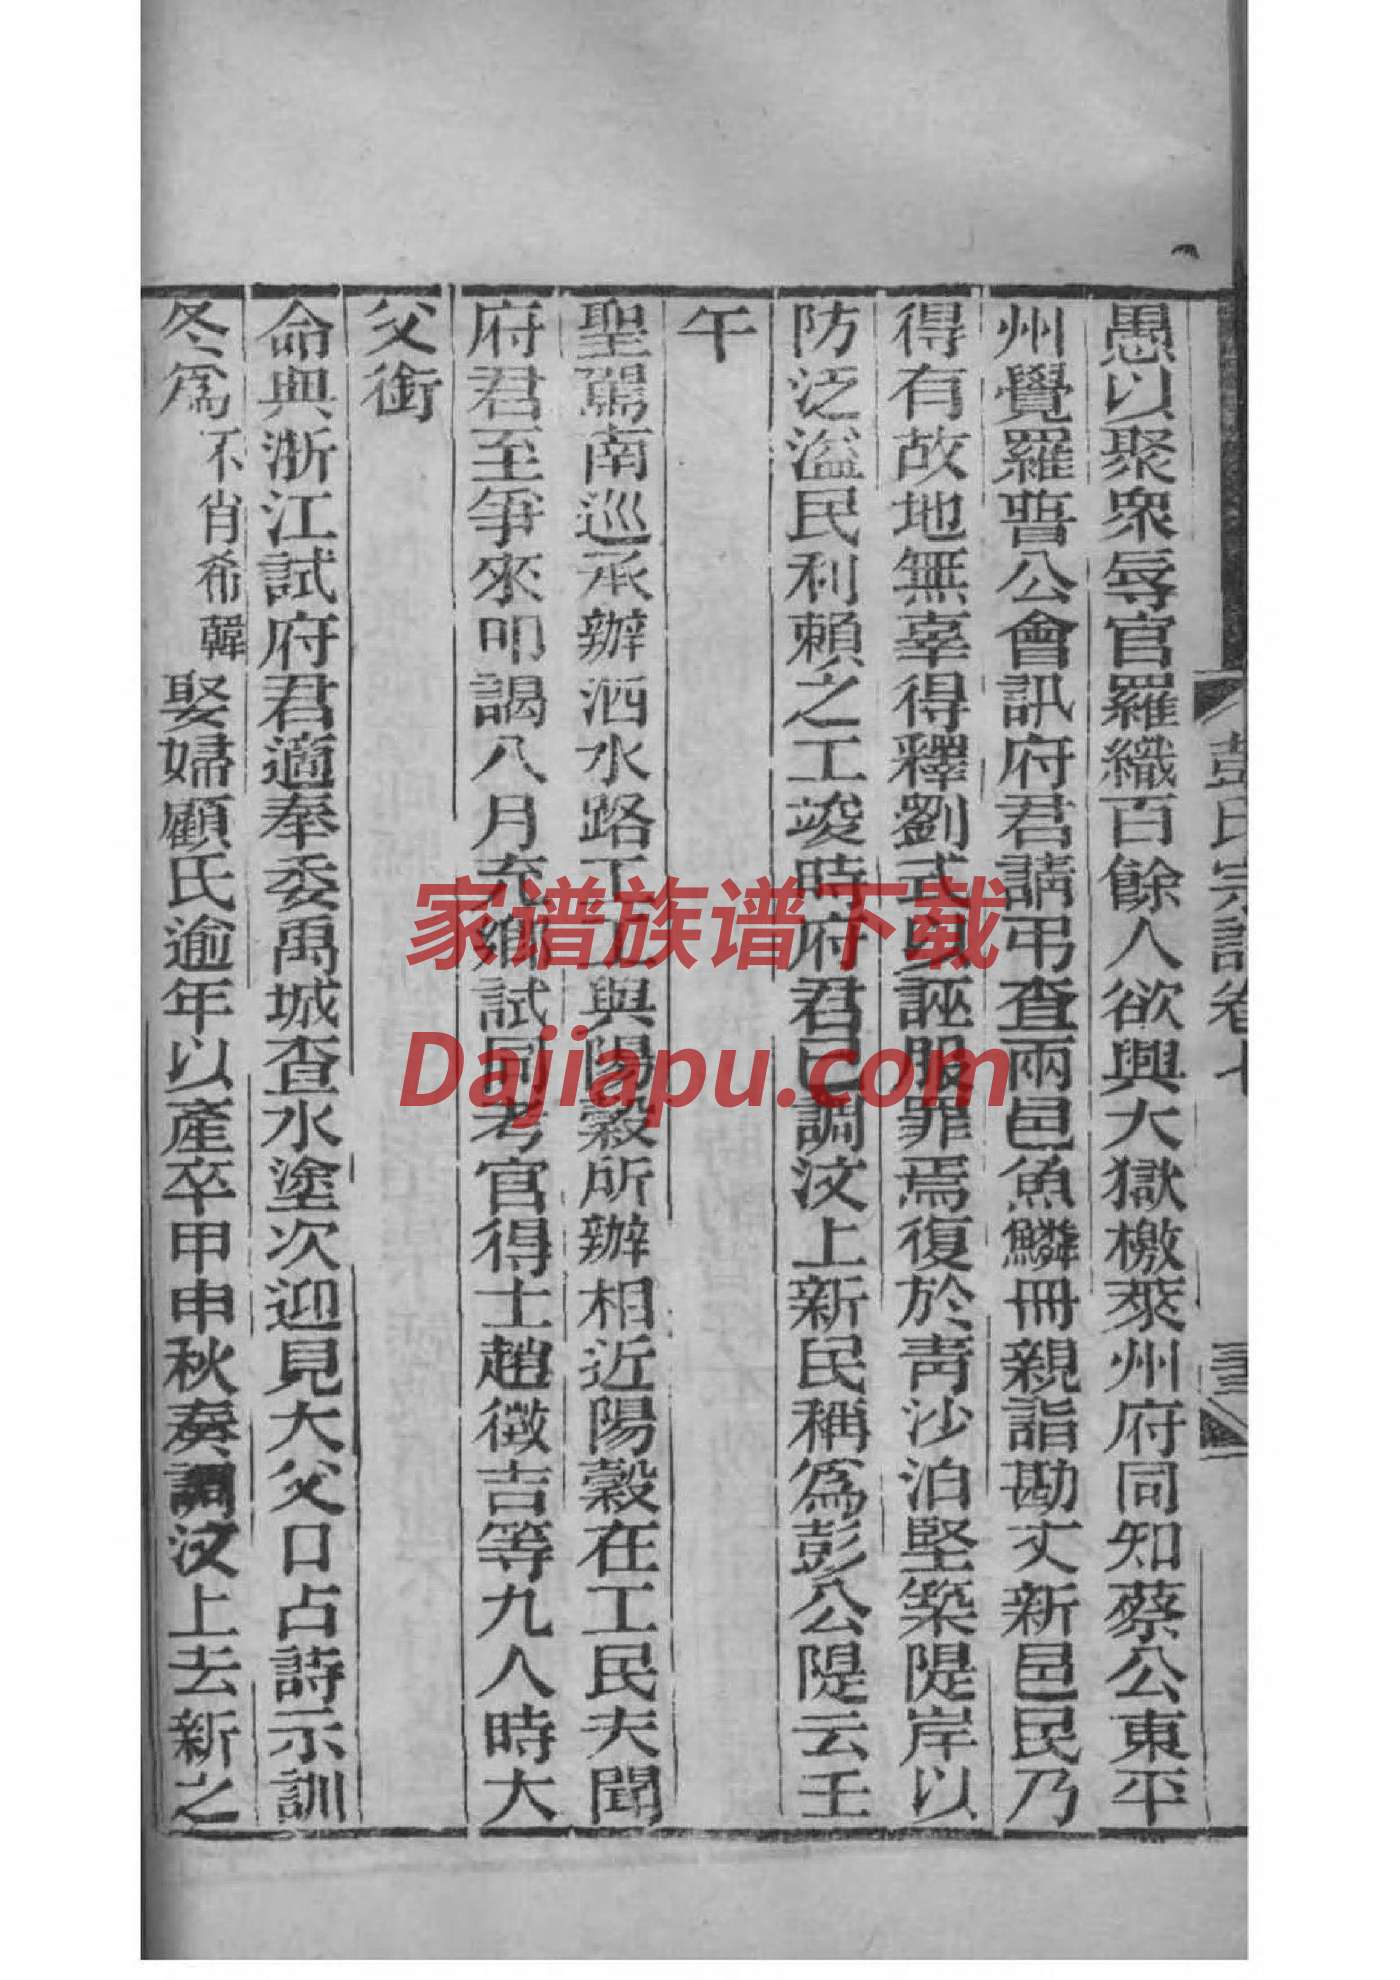 愚以聚衆辱官羅織百餘人欲興大獄檄萊州府同知蔡公東平
州覺羅普公會訊府君請弔查兩邑魚鱗冊親詣勘丈新邑民乃
得有故地無辜得釋劉式具誣服罪焉復於青沙泊堅築隄岸以
防泛溢民利賴之工竣時府君已調汶上新民稱為彭公隄云壬
午
聖駕南巡承辦泗水路工工與陽穀所辦相近陽穀在工民夫聞
府君至爭來叩謁八月充鄉試同考官得士趙徵吉等九人時大
父銜
命典浙江試府君適奉委禹城查水塗次迎見大父口占詩示訓
冬為不肖希韓娶婦顧氏逾年以產卒甲申秋奏調汶上去新之
彭氏宗譜卷七
家谱族谱下载
Dajiapu.com